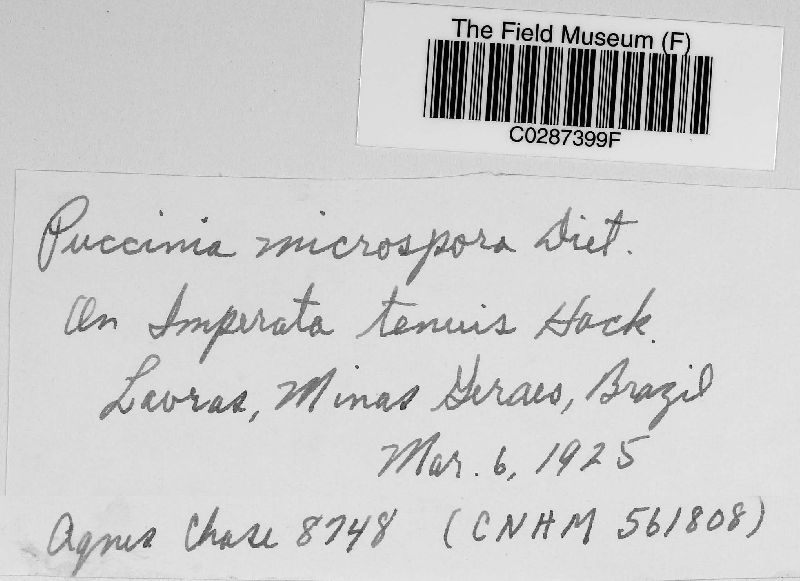 The Field Museum (F)
C0287399F
Puccinia microspora Diet.
On Imperata tenuis Hack.
Lavras, Minas Geraes, Brazil
Mar. 6, 1925
Agnes Chase 8748 (CNHM 561808)